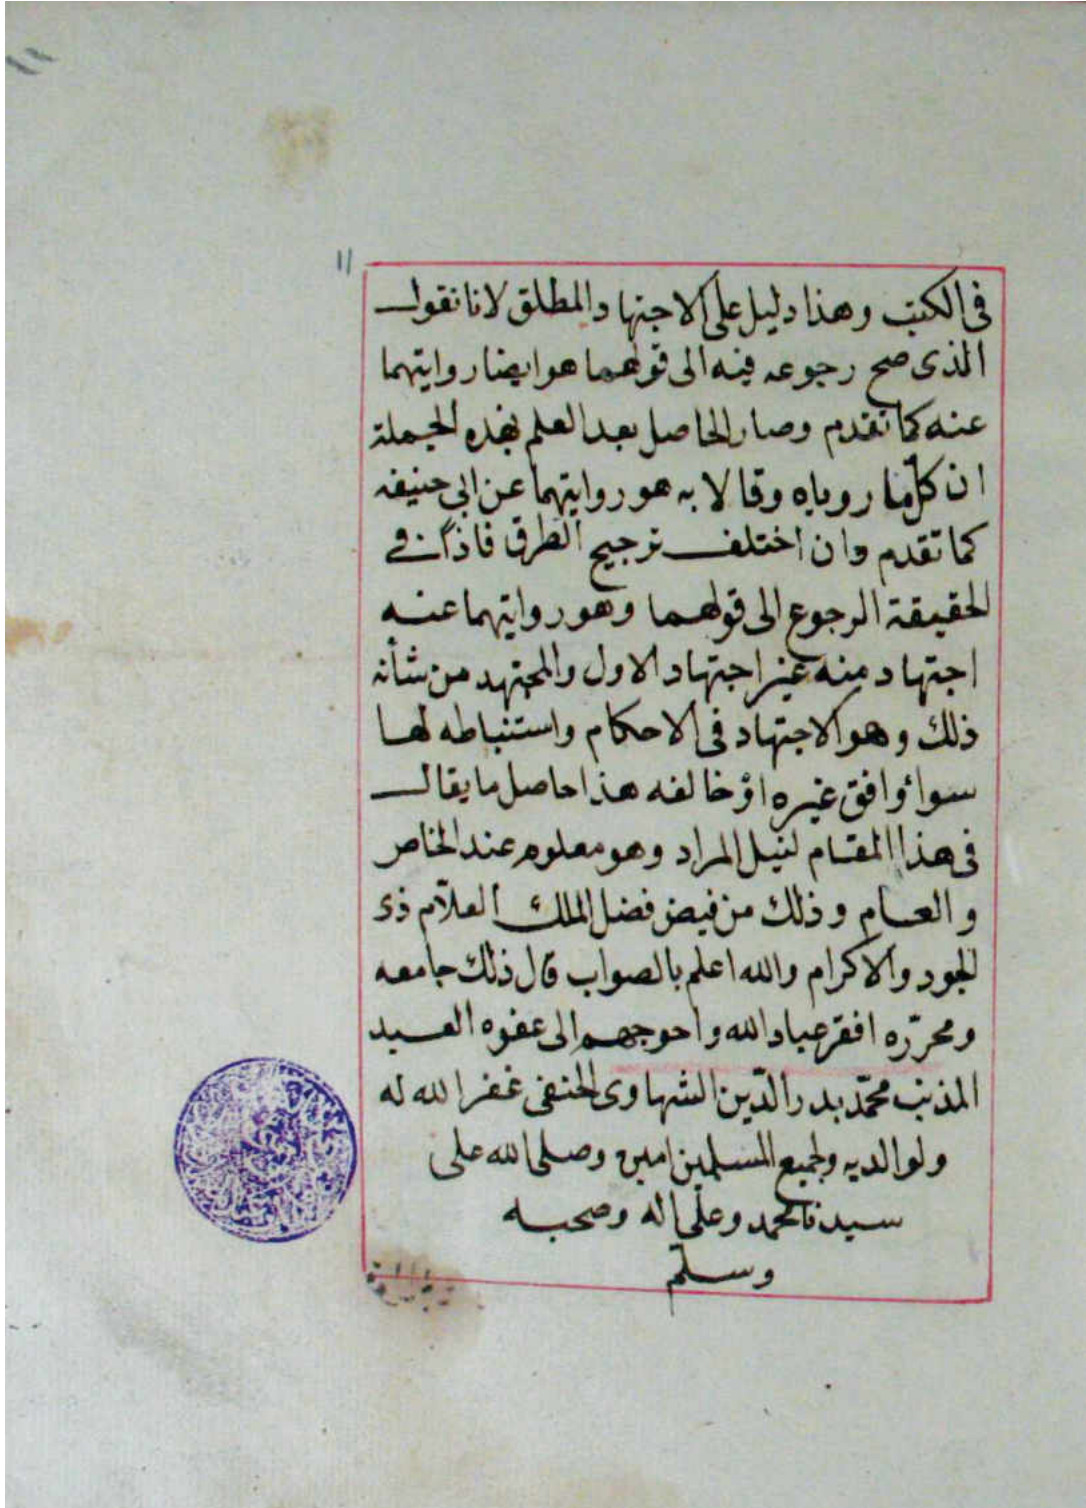 ١١
١١
فى الكتب وهذا دليل على الاجتهاد المطلق لانا نقول
الذى صح رجوعه فيه الى قولهما هو ايضا روايتهما
عنه كما تقدم وصار الحاصل بعد العلم بهذه الجملة
ان كل ما روياه وقالا به هو روايتهما عن ابى حنيفه
كما تقدم وان اختلف ترجيح الطرق فاذا فى
الحقيقة الرجوع الى قولهما وهو روايتهما عنه
اجتهاد منه غير اجتهاد الاول والمجتهد من شأنه
ذلك وهو الاجتهاد فى الاحكام واستنباطه لها
سواؤافق غيره اوخالفه هذا حاصل ما يقال
فى هذا المقام لنيل المراد وهو معلوم عند الخاص
والعام وذلك من فيض فضل الملك العلّام ذى
الجود والاكرام والله اعلم بالصواب قال ذلك جامعه
ومحرّره افقر عباد الله واحوجهم الى عفوه العبد
المذنب محمّد بدر الدّين الشهاوى الحنفى غفر الله له
ولوالديه ولجميع المسلمين امين وصلى الله على
سيدنا محمد وعلى اله وصحبه
وسلّم